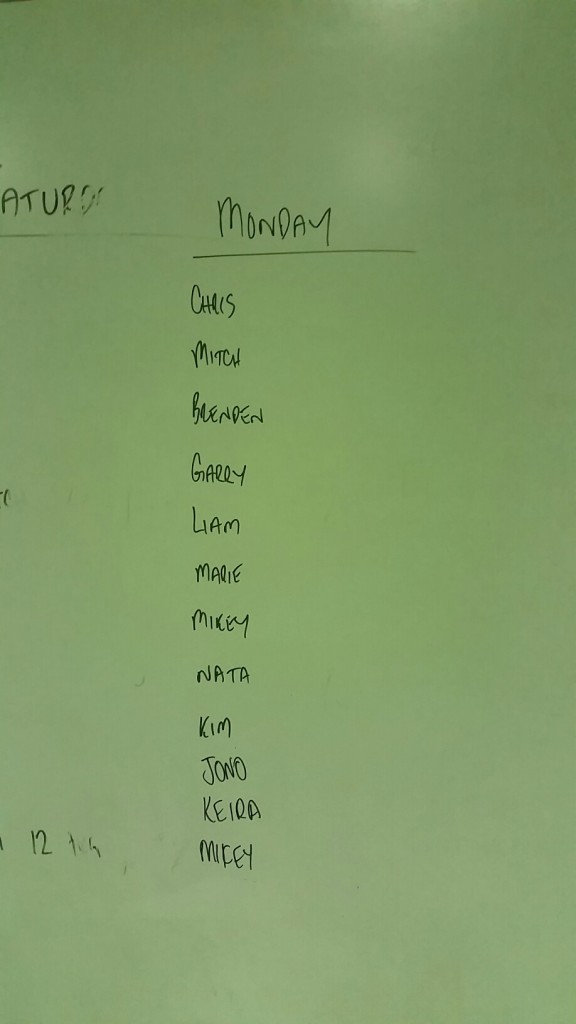 ATURD
MONDAY
CHRIS
MITCH
BRENDEN
GARRY
LIAM
MARIE
MIKEY
NATA
KIM
JONO
KEIRA
12
MIKEY